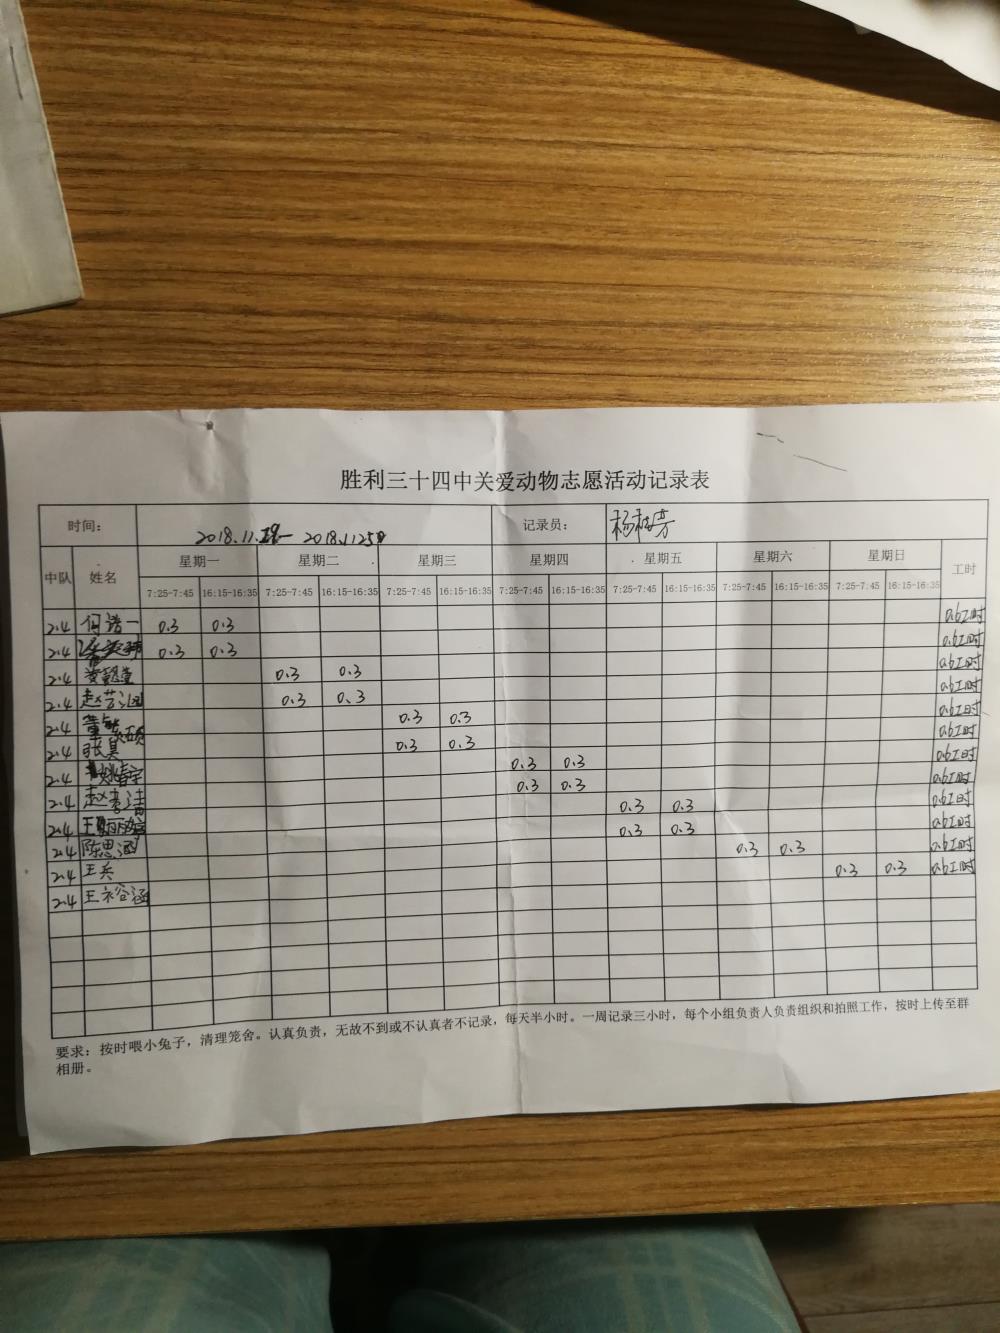 胜利三十四中关爱动物志愿活动记录表
时间: 2018.11. 一 2018.1125日 记录员: 杨
中队 姓名 星期一 星期二 星期三 星期四 星期五 星期六 星期日 工时
7:25-7:45 16:15-16:35 7:25-7:45 16:15-16:35 7:25-7:45 16:15-16:35 7:25-7:45 16:15-16:35 7:25-7:45 16:15-16:35 7:25-7:45 16:15-16:35 7:25-7:45 16:15-16:35
2.4 何浩一 0.3 0.3 0.6工时
2.4 0.3 0.3 0.6工时
2.4 0.3 0.3 0.6工时
2.4 赵芸汕 0.3 0.3 0.6工时
2.4 董 硕 0.3 0.3 0.6工时
2.4 张昊 0.3 0.3 0.6工时
2.4 0.3 0.3 0.6工时
2.4 赵 清 0.3 0.3 0.6工时
2.4 王 丽 0.3 0.3 0.6工时
2.4 陈思涵 0.3 0.3 0.6工时
2.4 王兵 0.3 0.3 0.6工时
2.4 王裕涵 0.3 0.3 0.6工时
要求: 按时喂小兔子，清理笼舍。认真负责，无故不到或不认真者不记录，每天半小时。一周记录三小时，每个小组负责人负责组织和拍照工作，按时上传至群
相册。